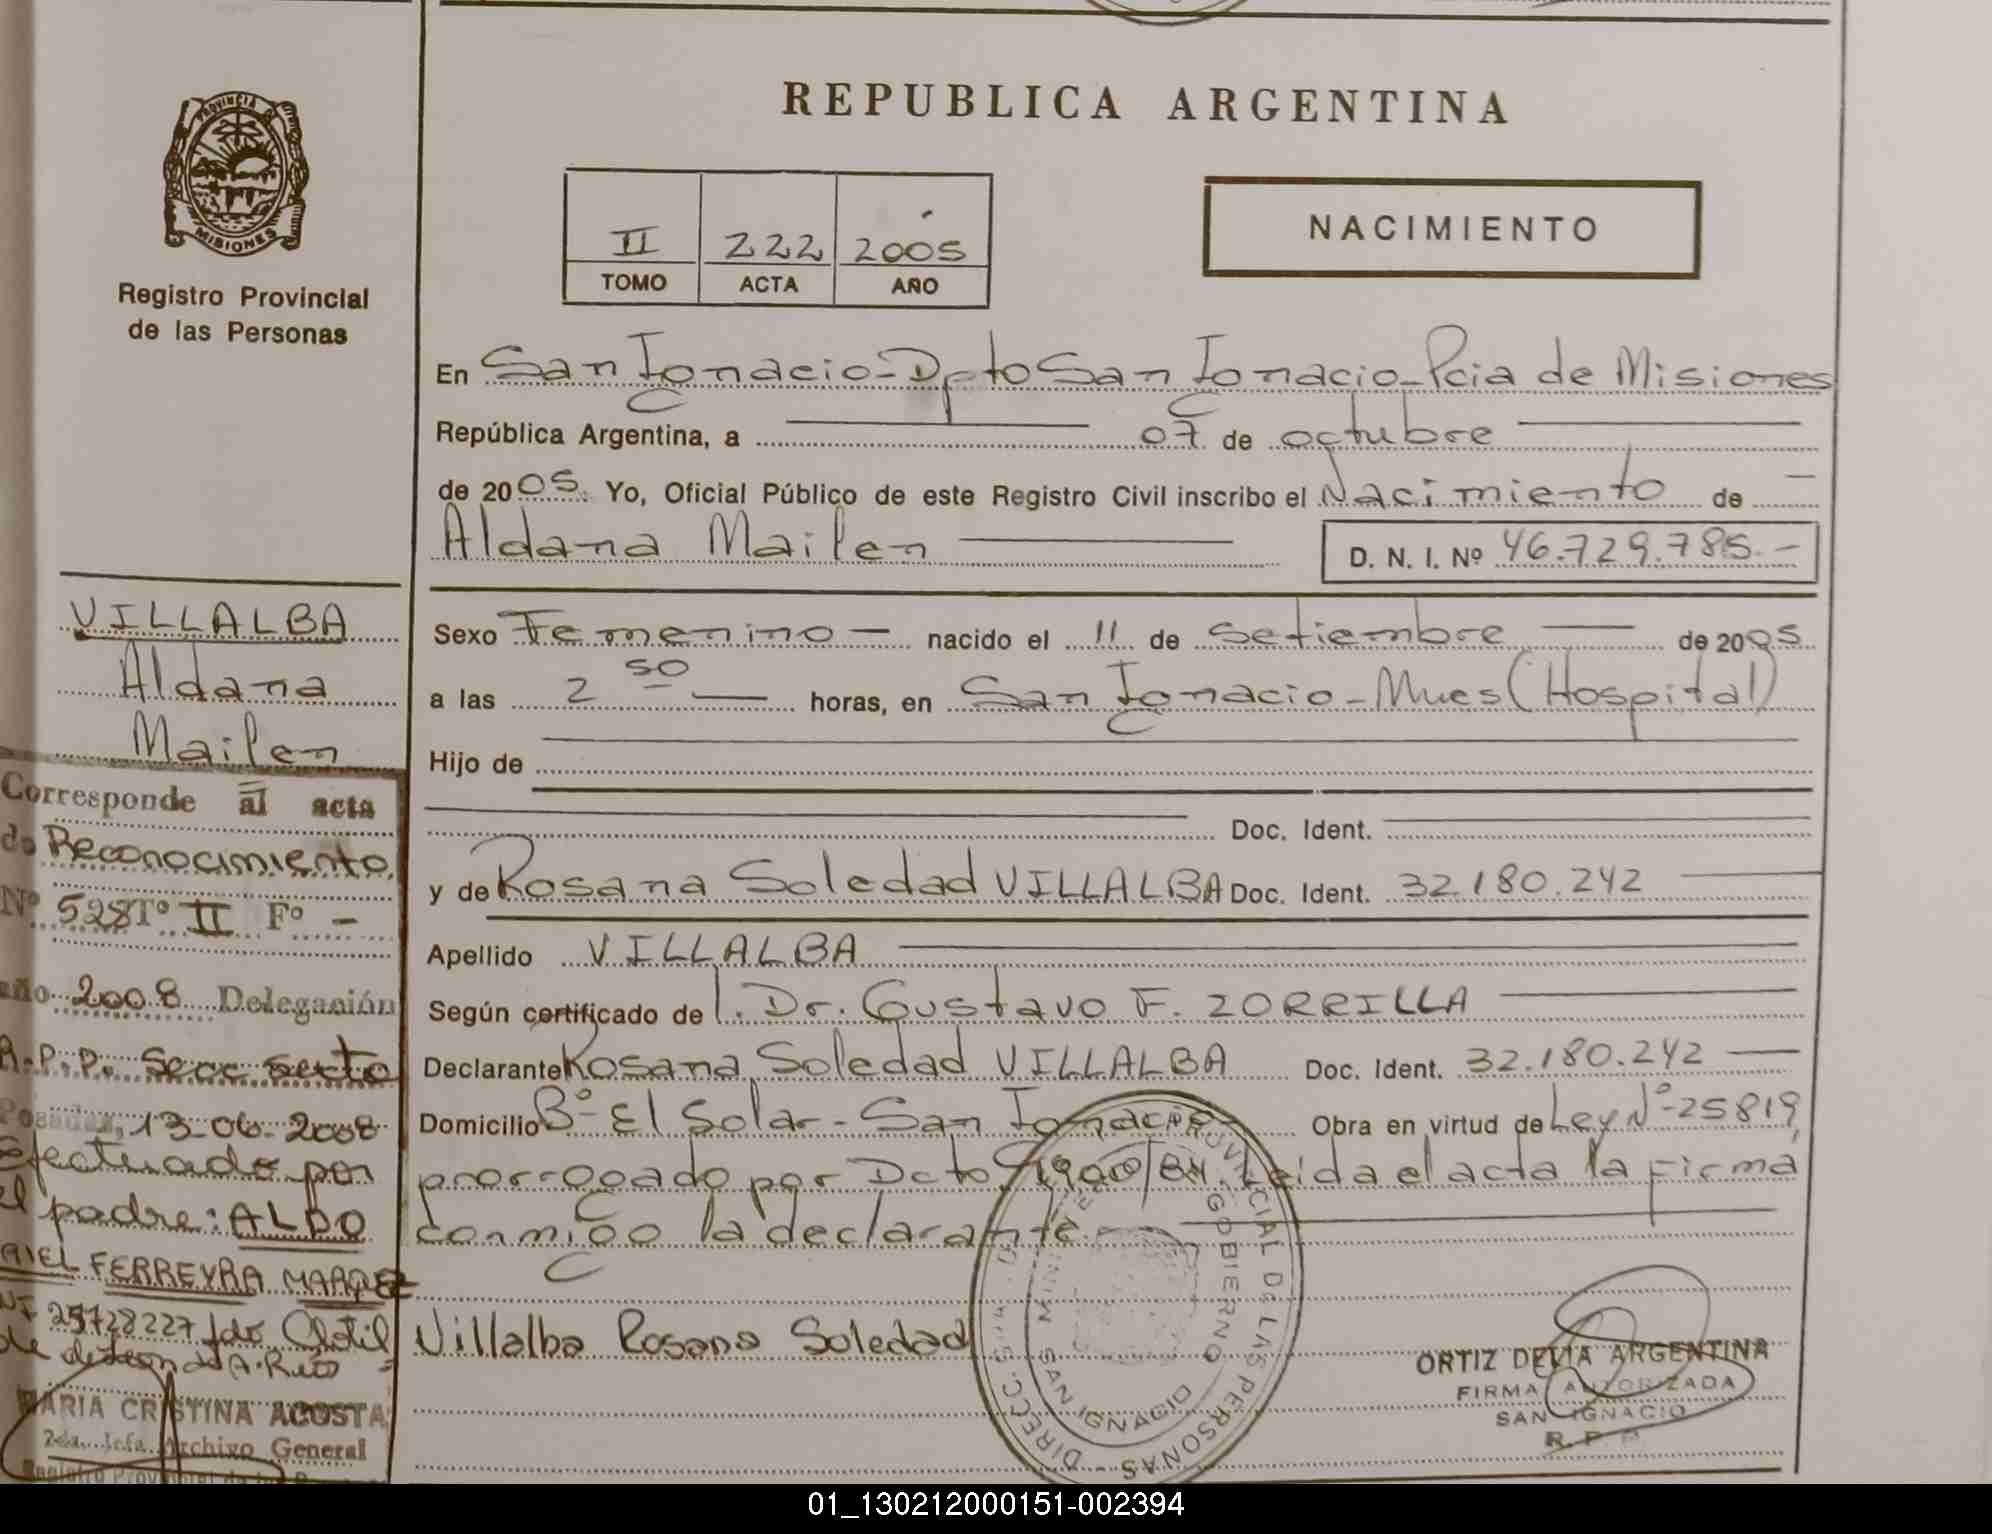 REPUBLICA ARGENTINA
PROVINCIA DE
MISIONES
Registro Provincial
de las Personas
II 222 2005
TOMO ACTA AÑO
NACIMIENTO
En San Ignacio - Dpto San Ignacio - Pcia de Misiones
República Argentina, a 07 de octubre
de 2005. Yo, Oficial Público de este Registro Civil inscribo el Nacimiento de
Aldana Mailen
D. N. I. Nº 46.729.785.-
Sexo Femenino - nacido el 11 de Setiembre de 2005
a las 2 50 horas, en San Ignacio - Mnes (Hospital)
Hijo de
Doc. Ident.
y de Rosana Soledad VILLALBA Doc. Ident. 32.180.242
Apellido VILLALBA
Según certificado de l. Dr. Gustavo F. ZORRILLA
Declarante Rosana Soledad VILLALBA Doc. Ident. 32.180.242
Domicilio Bº El Solar - San Ignacio Obra en virtud de Ley Nº 25819,
prorrogado por Dcto Leida el acta la firma
conmigo la declarante.
Villalba Rosana Soledad
DIRECC. PROVINCIAL DE LAS PERSONAS
GOBIERNO
SAN IGNACIO
ORTIZ DELIA ARGENTINA
FIRMA AUTORIZADA
SAN IGNACIO
R. P. P.
VILLALBA
Aldana
Mailen
Corresponde al acta
de Reconocimiento.
Nº 528 Tº II Fº -
año 2008 Delegación
R.P.P. Secc sexta
Posadas, 13-06-2008
Efectuado por
el padre: ALDO
ARIEL FERREYRA MARQUEZ
DNI 25728227
MARIA CRISTINA ACOSTA
2da. Jefa Archivo General
01_130212000151-002394